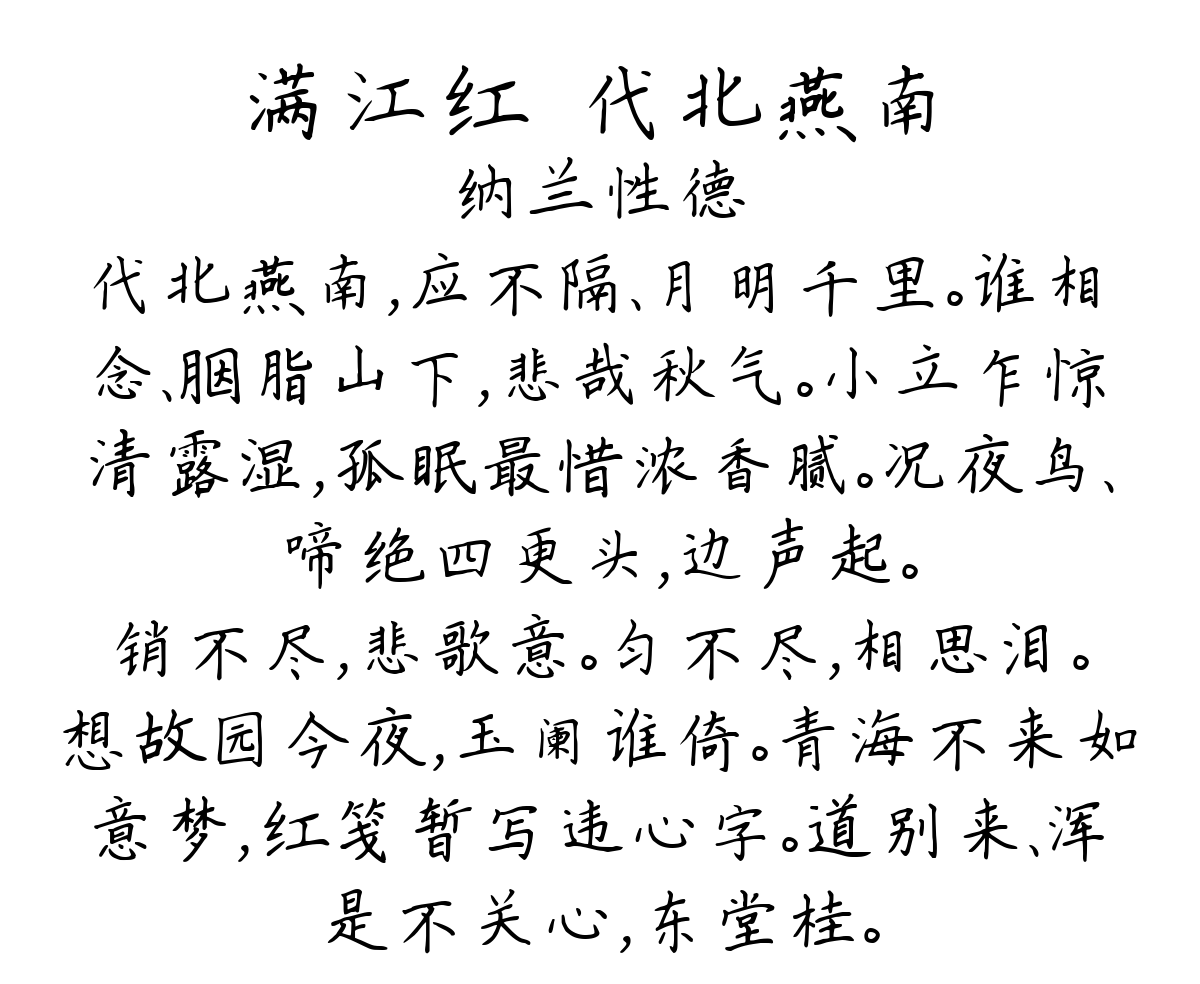 满江红 代北燕南
纳兰性德
代北燕南,应不隔、月明千里。谁相
念、胭脂山下,悲哉秋气。小立乍惊
清露湿,孤眠最惜浓香腻。况夜鸟、
啼绝四更头,边声起。
销不尽,悲歌意。匀不尽,相思泪。
想故园今夜,玉阑谁倚。青海不来如
意梦,红笺暂写违心字。道别来、浑
是不关心,东堂桂。